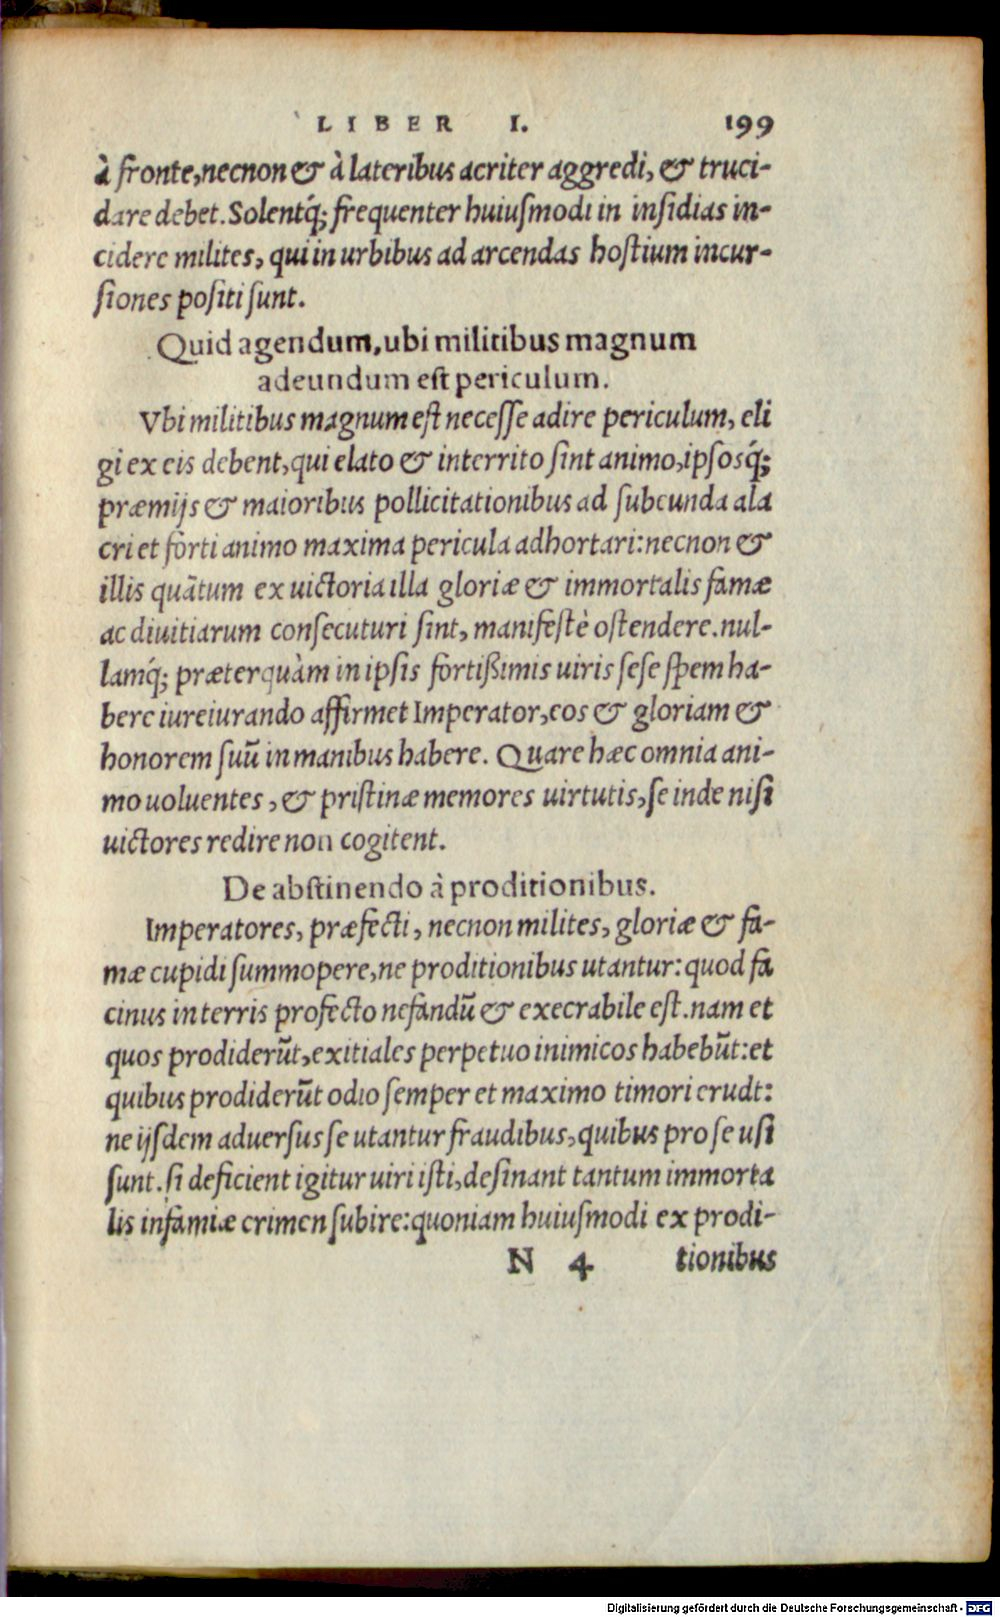 LIBER I. 199
à fronte, necnon & à lateribus acriter aggredi, & truci-
dare debet. Solentq́; frequenter huiuſmodi in inſidias in-
cidere milites, qui in urbibus ad arcendas hoſtium incur-
ſiones poſiti ſunt.
Quid agendum, ubi militibus magnum
adeundum eſt periculum.
Vbi militibus magnum eſt neceſſe adire periculum, eli
gi ex eis debent, qui elato & interrito ſint animo, ipſosq́;
præmijs & maioribus pollicitationibus ad ſubeunda ala
cri et forti animo maxima pericula adhortari: necnon &
illis quãtum ex uictoria illa gloriæ & immortalis famæ
ac diuitiarum conſecuturi ſint, manifeſtè oſtendere. nul-
lamq́; præterquàm in ipſis fortißimis uiris ſeſe ſpem ha-
bere iureiurando affirmet Imperator, eos & gloriam &
honorem ſuũ in manibus habere. Quare hæc omnia ani-
mo uoluentes, & priſtinæ memores uirtutis, ſe inde niſi
uictores redire non cogitent.
De abſtinendo à proditionibus.
Imperatores, præfecti, necnon milites, gloriæ & fa-
mæ cupidi ſummopere, ne proditionibus utantur: quod fa
cinus in terris profecto nefandũ & execrabile eſt. nam et
quos prodiderũt, exitiales perpetuo inimicos habebũt: et
quibus prodiderũt odio ſemper et maximo timori erudt:
ne ijſdem aduerſus ſe utantur fraudibus, quibus pro ſe uſi
ſunt. ſi deficient igitur uiri iſti, deſinant tantum immorta
lis infamiæ crimen ſubire: quoniam huiuſmodi ex prodi-
N 4 tionibus
Digitalisierung gefördert durch die Deutsche Forschungsgemeinschaft - DFG